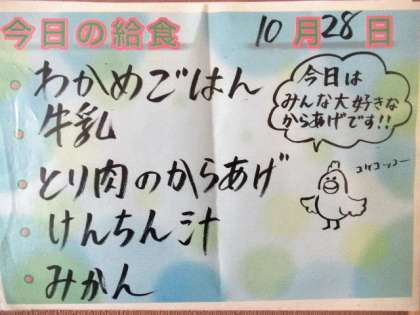 今日の給食
10月28日
わかめごはん
牛乳
とり肉のからあげ
けんちん汁
みかん
今日は
みんな大好きな
からあげです!!
コケコッコー